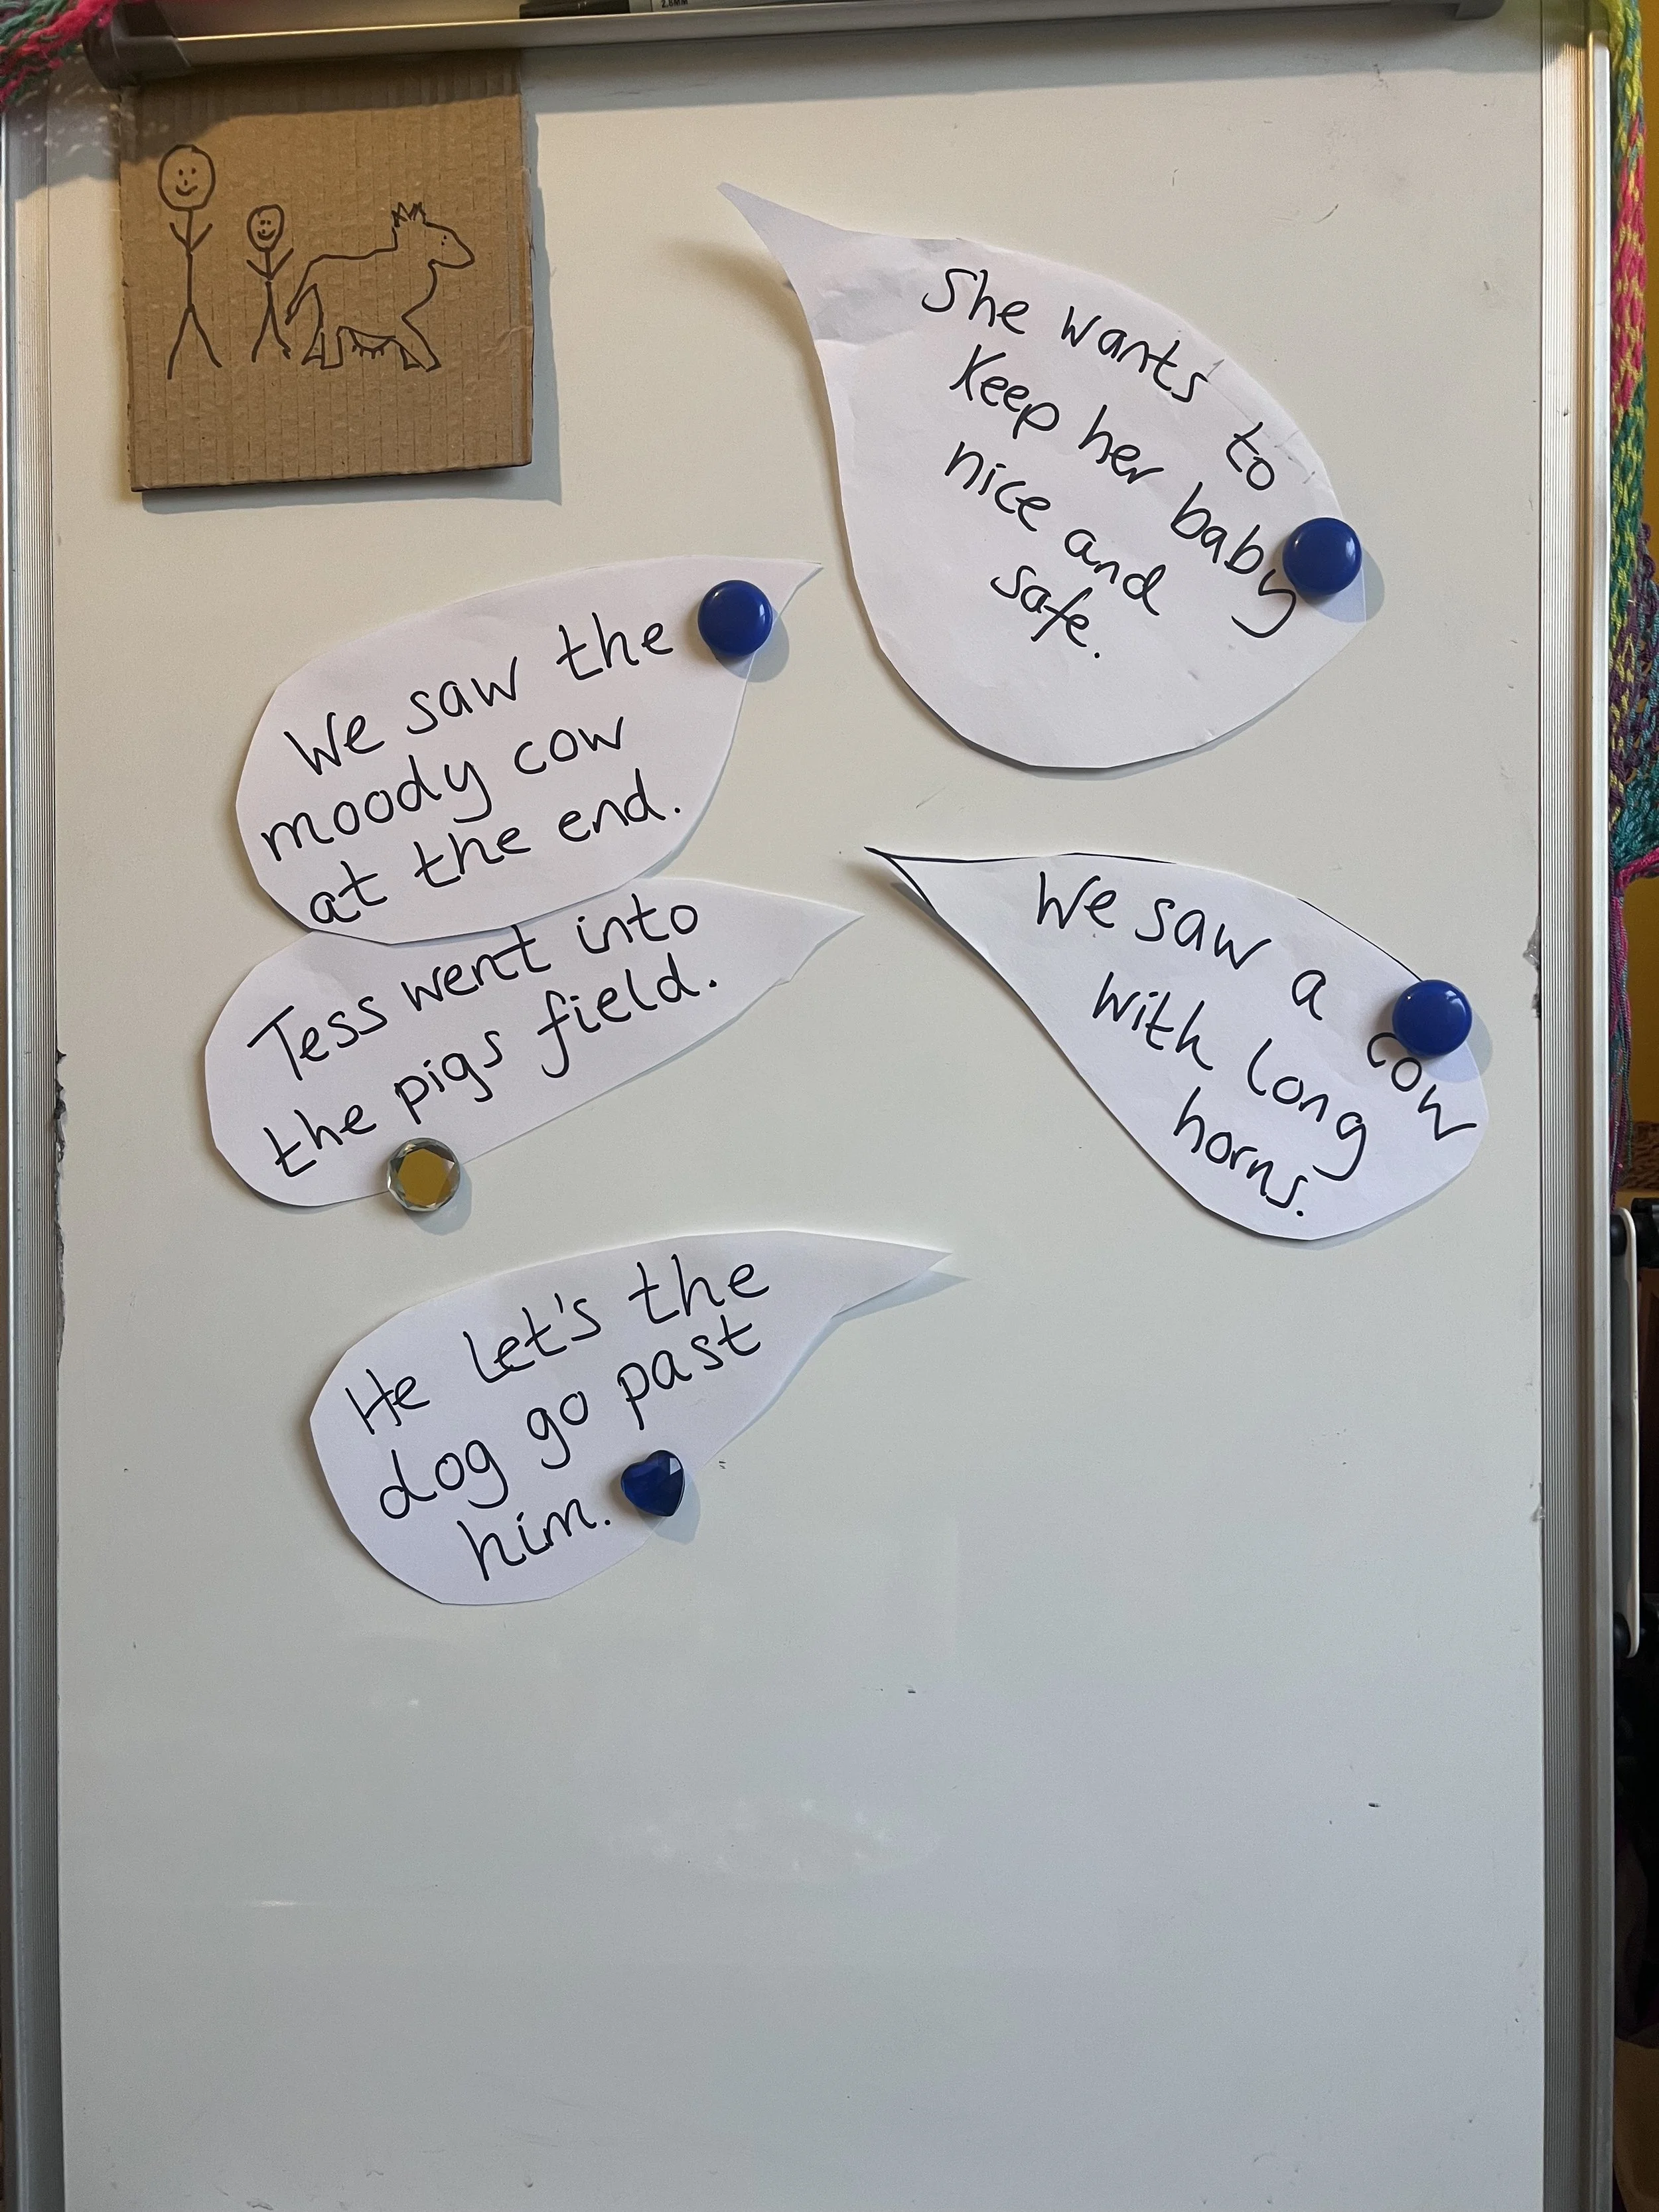 2.8MM
She wants to
keep her baby
nice and
safe.
We saw the
moody cow
at the end.
Tess went into
the pigs field.
We saw a cow
with long
horns.
He let's the
dog go past
him.